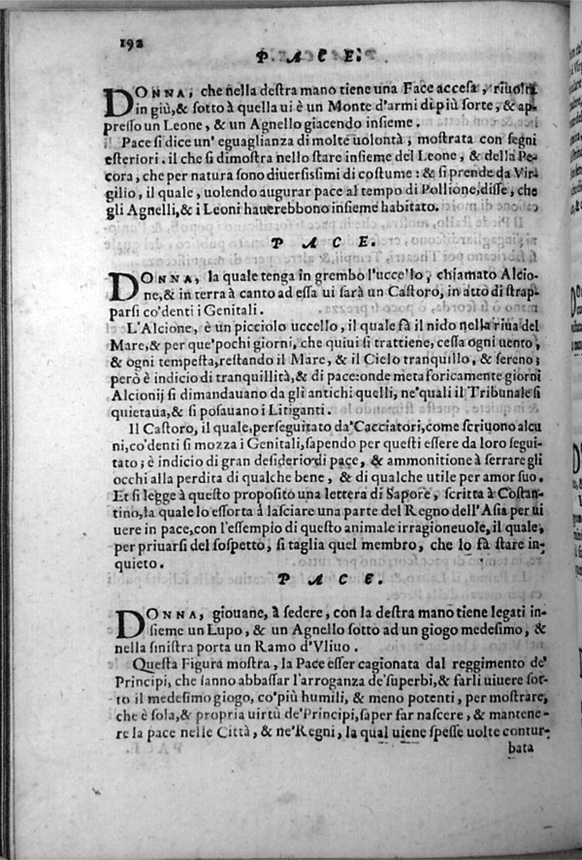 192
PACE.
DONNA, che nella destra mano tiene una Face accesa, riuolta
in giù,& sotto à quella ui è un Monte d'armi di più sorte, & ap-
presso un Leone, & un Agnello giacendo insieme.
Pace si dice un'egualglianza di molte uolontà, mostrata con segni
esteriori. il che si dimostra nello stare insieme del Leone, & della Pe-
cora, che per natura sono diuersissimi di costume: & si prende da Vir-
gilio, il quale, uolendo augurar pace al tempo di Pollione, disse, che
gli Agnelli,& i Leoni hauerebbono insieme habitato.
PACE.
DONNA, la quale tenga in grembo l'uccello, chiamato Alcio-
ne,& in terra à canto ad essa ui sarà un Castoro, in atto di strap-
parsi co'denti i Genitali.
L'Alcione, è un picciolo uccello, il quale fà il nido nella riua del
Mare,& per que'pochi giorni, che quiui si trattiene, cessa ogni uento,
& ogni tempesta,restando il Mare, & il Cielo tranquillo, & sereno;
però è indicio di tranquillità,& di pace:onde metaforicamente giorni
Alcionij si dimandauano da gli antichi quelli, ne'quali il Tribunale si
quietaua,& si posauano i Litiganti.
Il Castoro, il quale,perseguitato da'Cacciatori,come scriuono alcu
ni,co'denti si mozza i Genitali,sapendo per questi essere da loro segui-
tato; è indicio di gran desiderio di pace, & ammonitione à serrare gli
occhi alla perdita di qualche bene, & di qualche utile per amor suo.
Et si legge à questo proposito una lettera di Sapore, scritta à Costan-
tino,la quale lo essorta à lasciare una parte del Regno dell'Asia per ui
uere in pace,con l'essempio di questo animale irragioneuole, il quale,
per priuarsi del sospetto, si taglia quel membro, che lo fà stare in-
quieto.
PACE.
DONNA, giouane, à sedere, con la destra mano tiene legati in-
sieme un Lupo, & un Agnello sotto ad un giogo medesimo, &
nella sinistra porta un Ramo d'Vliuo.
Questa Figura mostra, la Pace esser cagionata dal reggimento de'
Principi, che sanno abbassar l'arroganza de'superbi,& farli uiuere sot-
to il medesimo giogo, co'più humili, & meno potenti, per mostrare,
che è sola,& propria uirtù de'Principi,saper far nascere, & mantene-
re la pace nelle Città, & ne'Regni, la qual uiene spesse uolte contur-
bata